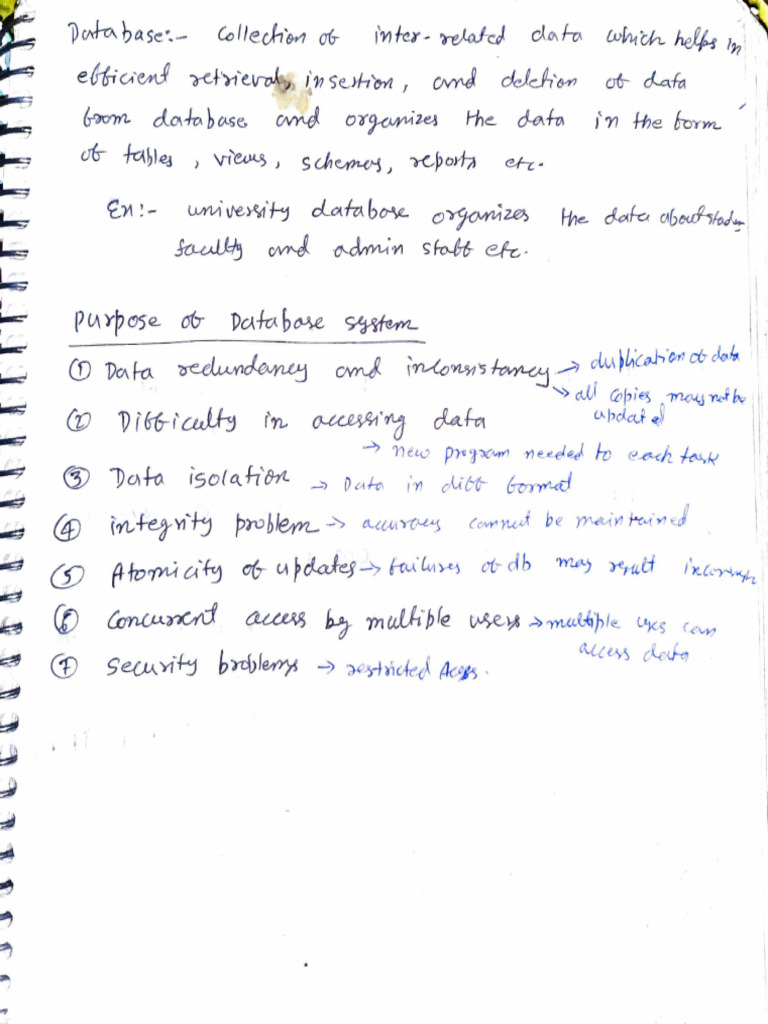 Database:- Collection of inter-related data which helps in
efficient retrieval, insertion, and deletion of data
from database and organizes the data in the form
of tables, views, schemas, reports etc.
Ex:- university database organizes the data about
faculty and admin staff etc.
Purpose of Database system
① Data redundancy and inconsistancy → duplication of data
→ all copies may not be
updated
② Difficulty in accessing data
→ new program needed to each task
③ Data isolation → Data in diff format
④ integrity problem → accuracy cannot be maintained
⑤ Atomicity of updates → failures of db may result
⑥ Concurrent access by multiple users → multiple can
access data
⑦ Security problems → restricted